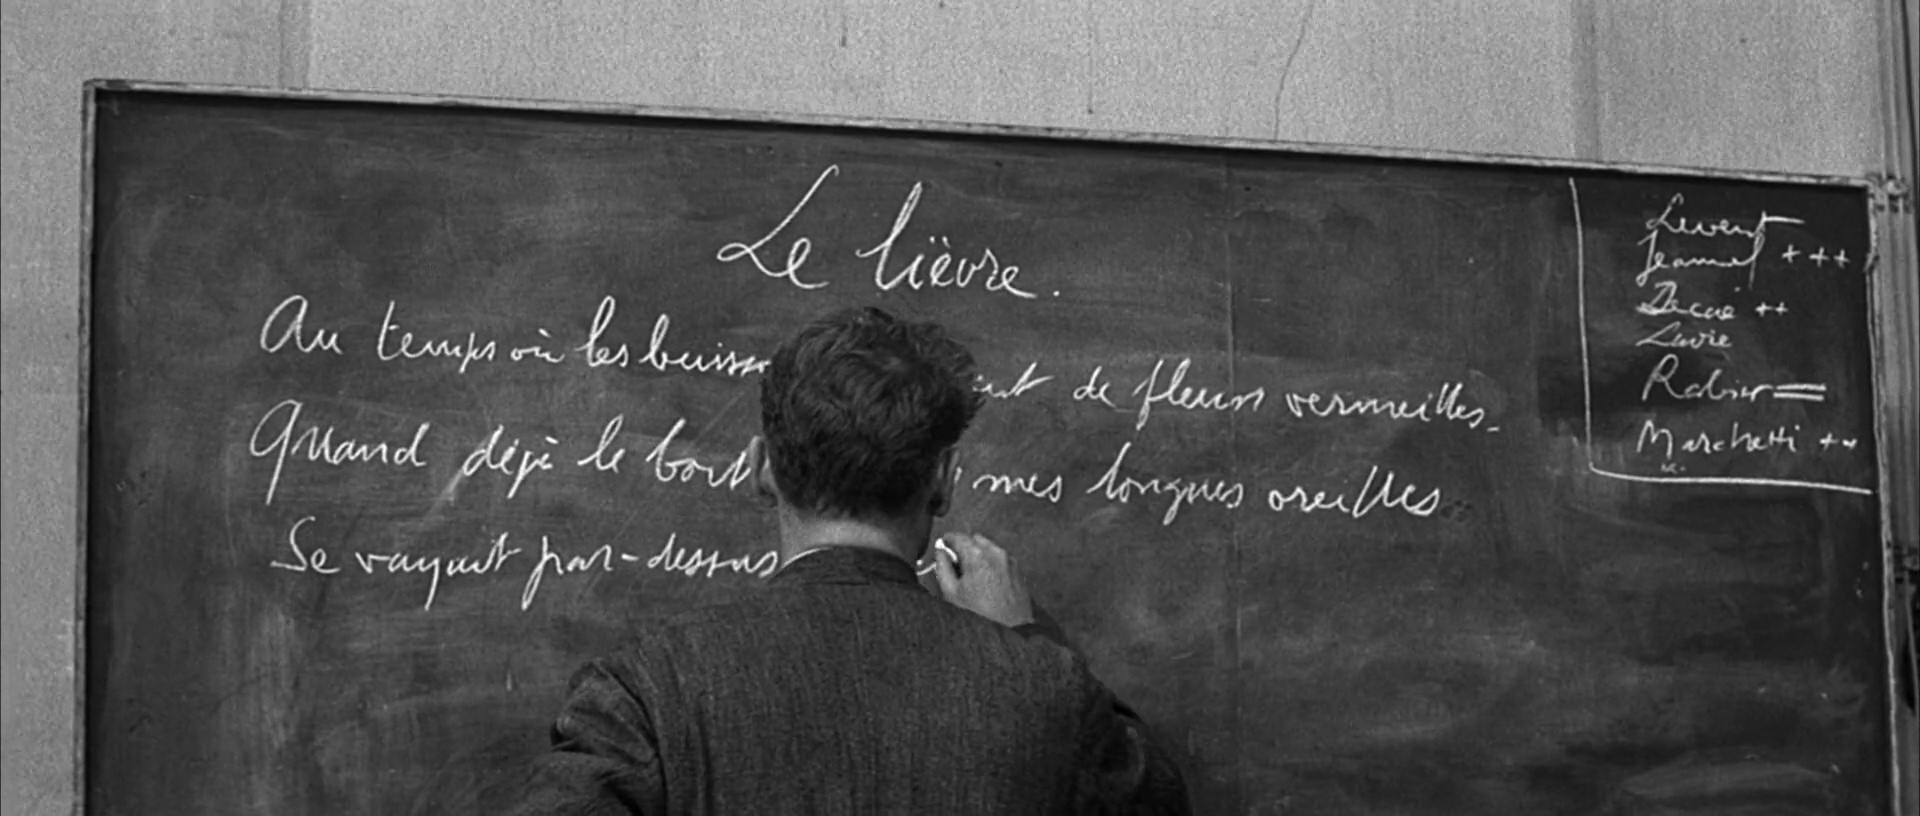 Le lièvre.
Au temps où les buisso ent de fleurs vermeilles.
Quand déjà le bout mes longues oreilles
Se voyait par-dessus
Levent
Jeannel +++
Decaé ++
Lavie
Rabier =
Marchetti ++